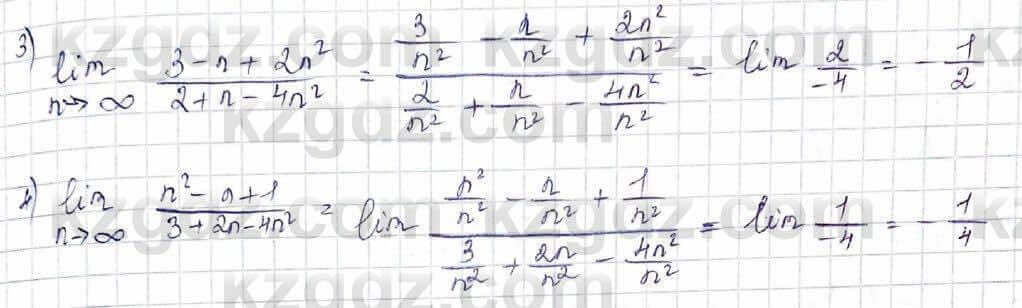 3) lim n→∞ (3-n+2n²)/(2+n-4n²) = (3/n² - n/n² + 2n²/n²)/(2/n² + n/n² - 4n²/n²) = lim 2/-4 = -1/2
4) lim n→∞ (n²-n+1)/(3+2n-4n²) = lim (n²/n² - n/n² + 1/n²)/(3/n² + 2n/n² - 4n²/n²) = lim 1/-4 = -1/4
kzgdz.com
kzgdz.com
kzgdz.com